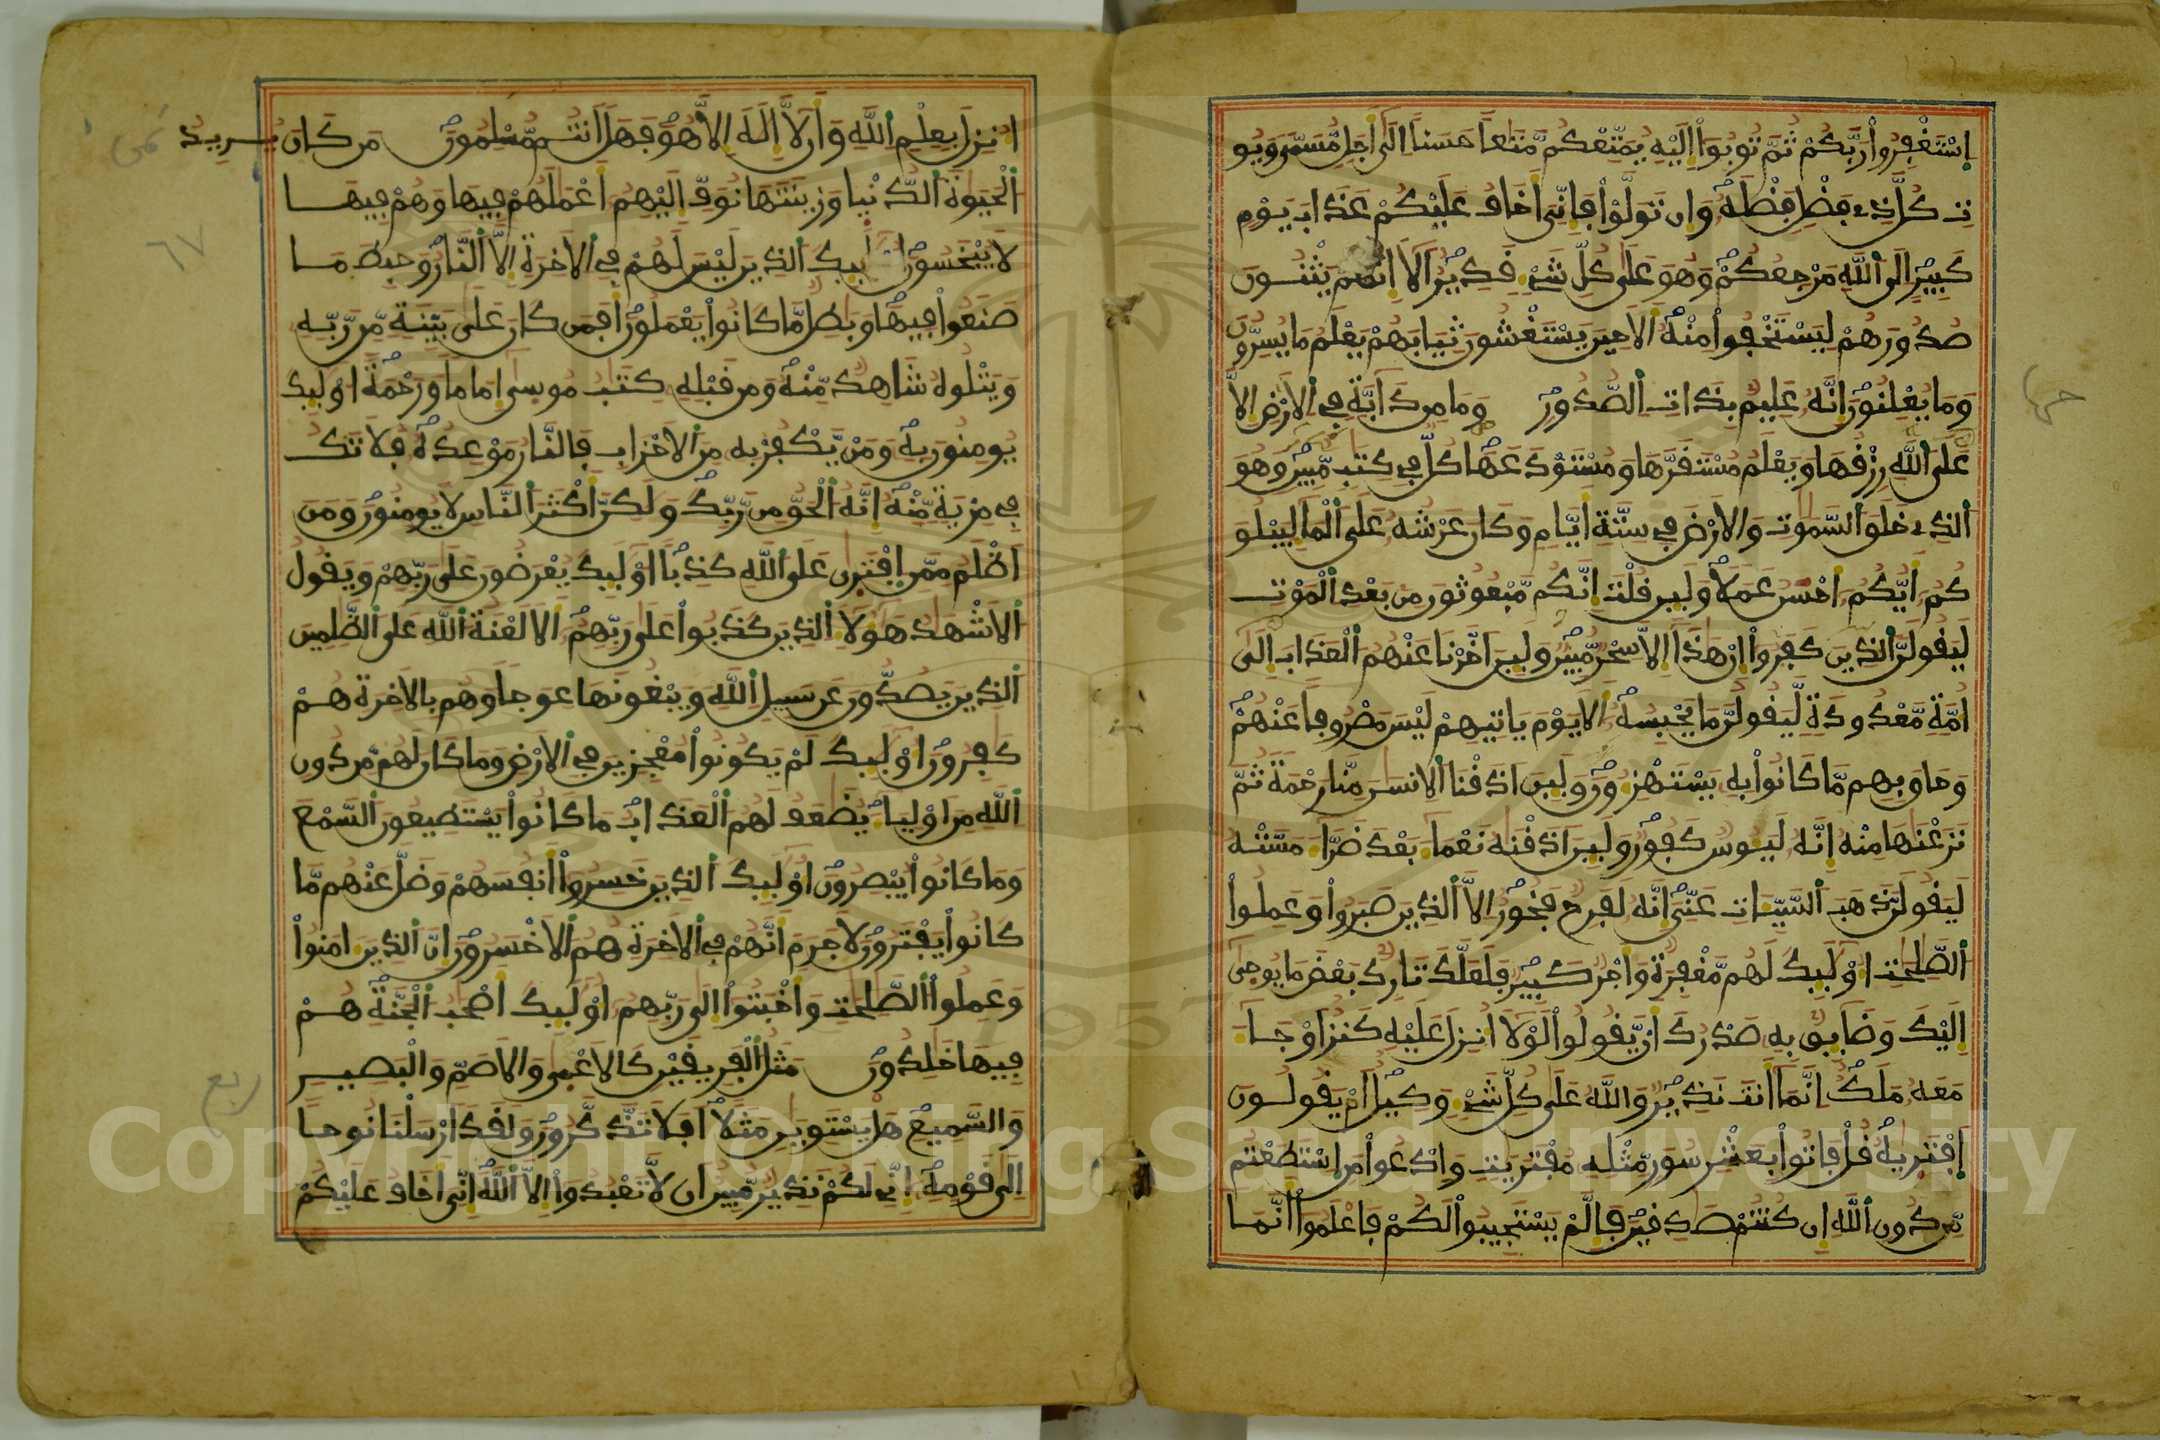 اِسْتَغْفِرُواْ رَبَّكُمْ ثُمَّ تُوبُواْ إِلَيْهِ يُمَتِّعْكُم مَّتَٰعاً حَسَناً إِلَىٰ أَجَلٖ مُّسَمّىٗ وَيُو
تِ كُلَّ ذِے فَضْلٖ فَضْلَهُۥ وَإِن تَوَلَّوْاْ فَإِنِّىَ أَخَافُ عَلَيْكُمْ عَذَابَ يَوْمٖ
كَبِيرٍ إِلَى اَللَّهِ مَرْجِعُكُمْ وَهُوَ عَلَىٰ كُلِّ شَےْءٖ قَدِيرٌ أَلَا إِنَّهُمْ يَثْنُونَ
صُدُورَهُمْ لِيَسْتَخْفُواْ مِنْهُ أَلَا حِينَ يَسْتَغْشُونَ ثِيَابَهُمْ يَعْلَمُ مَا يُسِرُّونَ
وَمَا يُعْلِنُونَ إِنَّهُۥ عَلِيمٌ بِذَاتِ اِلصُّدُورِ وَمَا مِن دَآبَّةٖ فِے اِلَارْضِ إِلَّا
عَلَى اَللَّهِ رِزْقُهَا وَيَعْلَمُ مُسْتَقَرَّهَا وَمُسْتَوْدَعَهَا كُلّٞ فِے كِتَٰبٖ مُّبِينٖ وَهُوَ
اَلذِے خَلَقَ اَلسَّمَٰوَٰتِ وَالَارْضَ فِے سِتَّةِ أَيَّامٖ وَكَانَ عَرْشُهُۥ عَلَى اَلْمَآءِ لِيَبْلُوَ
كُمُۥ أَيُّكُمُۥ أَحْسَنُ عَمَلاٗ وَلَئِن قُلْتَ إِنَّكُم مَّبْعُوثُونَ مِن بَعْدِ اِلْمَوْتِ
لَيَقُولَنَّ اَلذِينَ كَفَرُواْ إِنْ هَٰذَا إِلَّا سِحْرٞ مُّبِينٞ وَلَئِنَ اَخَّرْنَا عَنْهُمُ اُلْعَذَابَ إِلَىٰ
أُمَّةٖ مَّعْدُودَةٖ لَّيَقُولُنَّ مَا يَحْبِسُهُۥ أَلَا يَوْمَ يَاتِيهِمْ لَيْسَ مَصْرُوفاً عَنْهُمْ
وَحَاقَ بِهِم مَّا كَانُواْ بِهِۦ يَسْتَهْزِءُونَ وَلَئِنَ اَذَقْنَا اَلِانسَٰنَ مِنَّا رَحْمَةٗ ثُمَّ
نَزَعْنَٰهَا مِنْهُ إِنَّهُۥ لَيَئُوسٞ كَفُورٞ وَلَئِنَ اَذَقْنَٰهُ نَعْمَآءَ بَعْدَ ضَرَّآءَ مَسَّتْهُ
لَيَقُولَنَّ ذَهَبَ اَلسَّيِّـَٔاتُ عَنِّىَ إِنَّهُۥ لَفَرِحٞ فَخُورٌ إِلَّا اَلذِينَ صَبَرُواْ وَعَمِلُواْ
اَلصَّٰلِحَٰتِ أُوْلَٰئِكَ لَهُم مَّغْفِرَةٞ وَأَجْرٞ كَبِيرٞ فَلَعَلَّكَ تَارِكٌ بَعْضَ مَا يُوحَىٰ
إِلَيْكَ وَضَآئِقٌ بِهِۦ صَدْرُكَ أَنْ يَّقُولُواْ لَوْلَا أُنزِلَ عَلَيْهِ كَنزٌ أَوْ جَآءَ
مَعَهُۥ مَلَكٌ إِنَّمَا أَنتَ نَذِيرٞ وَاللَّهُ عَلَىٰ كُلِّ شَےْءٖ وَكِيلٌ أَمْ يَقُولُونَ
اَفْتَرَىٰهُ قُلْ فَاتُواْ بِعَشْرِ سُوَرٖ مِّثْلِهِۦ مُفْتَرَيَٰتٖ وَادْعُواْ مَنِ اِسْتَطَعْتُم
مِّن دُونِ اِللَّهِ إِن كُنتُمْ صَٰدِقِينَ فَإِلَّمْ يَسْتَجِيبُواْ لَكُمْ فَاعْلَمُواْ أَنَّمَا
أُنزِلَ بِعِلْمِ اِللَّهِ وَأَن لَّا إِلَٰهَ إِلَّا هُوَ فَهَلَ اَنتُم مُّسْلِمُونَ مَن كَانَ يُرِيدُ
اُلْحَيَوٰةَ اَلدُّنْيَا وَزِينَتَهَا نُوَفِّ إِلَيْهِمُۥ أَعْمَٰلَهُمْ فِيهَا وَهُمْ فِيهَا
لَا يُبْخَسُونَ أُوْلَٰئِكَ اَلذِينَ لَيْسَ لَهُمْ فِے اِلَاخِرَةِ إِلَّا اَلنَّارُ وَحَبِطَ مَا
صَنَعُواْ فِيهَا وَبَٰطِلٞ مَّا كَانُواْ يَعْمَلُونَ أَفَمَن كَانَ عَلَىٰ بَيِّنَةٖ مِّن رَّبِّهِۦ
وَيَتْلُوهُ شَاهِدٞ مِّنْهُ وَمِن قَبْلِهِۦ كِتَٰبُ مُوسَىٰ إِمَاماٗ وَرَحْمَةً أُوْلَٰئِكَ
يُومِنُونَ بِهِۦ وَمَنْ يَّكْفُرْ بِهِۦ مِنَ اَلَاحْزَابِ فَالنَّارُ مَوْعِدُهُۥ فَلَا تَكُ
فِے مِرْيَةٖ مِّنْهُ إِنَّهُ اُلْحَقُّ مِن رَّبِّكَ وَلَٰكِنَّ أَكْثَرَ اَلنَّاسِ لَا يُومِنُونَ وَمَنَ
اَظْلَمُ مِمَّنِ اِفْتَرَىٰ عَلَى اَللَّهِ كَذِباً أُوْلَٰئِكَ يُعْرَضُونَ عَلَىٰ رَبِّهِمْ وَيَقُولُ
اُلَاشْهَٰدُ هَٰؤُلَاءِ اِلذِينَ كَذَبُواْ عَلَىٰ رَبِّهِمُۥ أَلَا لَعْنَةُ اُللَّهِ عَلَى اَلظَّٰلِمِينَ
اَلذِينَ يَصُدُّونَ عَن سَبِيلِ اِللَّهِ وَيَبْغُونَهَا عِوَجاٗ وَهُم بِالَاخِرَةِ هُمْ
كَٰفِرُونَ أُوْلَٰئِكَ لَمْ يَكُونُواْ مُعْجِزِينَ فِے اِلَارْضِ وَمَا كَانَ لَهُم مِّن دُونِ
اِللَّهِ مِنَ اَوْلِيَآءَ يُضَٰعَفُ لَهُمُ اُلْعَذَابُ مَا كَانُواْ يَسْتَطِيعُونَ اَلسَّمْعَ
وَمَا كَانُواْ يُبْصِرُونَ أُوْلَٰئِكَ اَلذِينَ خَسِرُواْ أَنفُسَهُمْ وَضَلَّ عَنْهُم مَّا
كَانُواْ يَفْتَرُونَ لَا جَرَمَ أَنَّهُمْ فِے اِلَاخِرَةِ هُمُ اُلَاخْسَرُونَ إِنَّ اَلذِينَ ءَامَنُواْ
وَعَمِلُواْ اُلصَّٰلِحَٰتِ وَأَخْبَتُواْ إِلَىٰ رَبِّهِمُۥ أُوْلَٰئِكَ أَصْحَٰبُ اُلْجَنَّةِ هُمْ
فِيهَا خَٰلِدُونَ مَثَلُ اُلْفَرِيقَيْنِ كَالَاعْمَىٰ وَالَاصَمِّ وَالْبَصِيرِ
وَالسَّمِيعِ هَلْ يَسْتَوِيَٰنِ مَثَلاً أَفَلَا تَذَّكَّرُونَ وَلَقَدَ اَرْسَلْنَا نُوحاً
إِلَىٰ قَوْمِهِۦ إِنِّے لَكُمْ نَذِيرٞ مُّبِينٌ أَن لَّا تَعْبُدُواْ إِلَّا اَللَّهَ إِنِّىَ أَخَافُ عَلَيْكُمْ
٦٧
ربع
Copyright © King Saud University